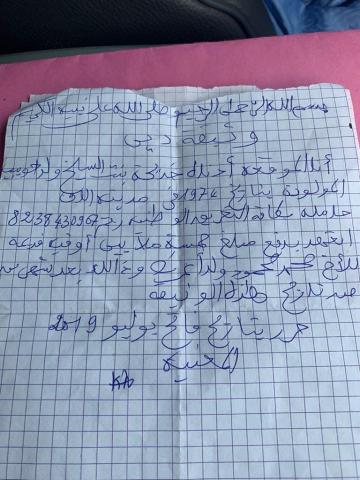 بسم الله الرحمن الرحيم وصلى الله على نبيه الكريم
وثيقة دين
أنا الموقعة أدناه خديجة بنت الشيخ ولد
المولودة بتاريخ 1974 في مدينة
حاملة بطاقة التعريف الوطنية رقم 8238430967
أتعهد بدفع مبلغ خمسة ملايين أوقية قديمة
للأخ محمود ولد بعد شهرين
من تاريخ هذه الوثيقة
حرر بتاريخ فاتح يوليو 2019
المعنية